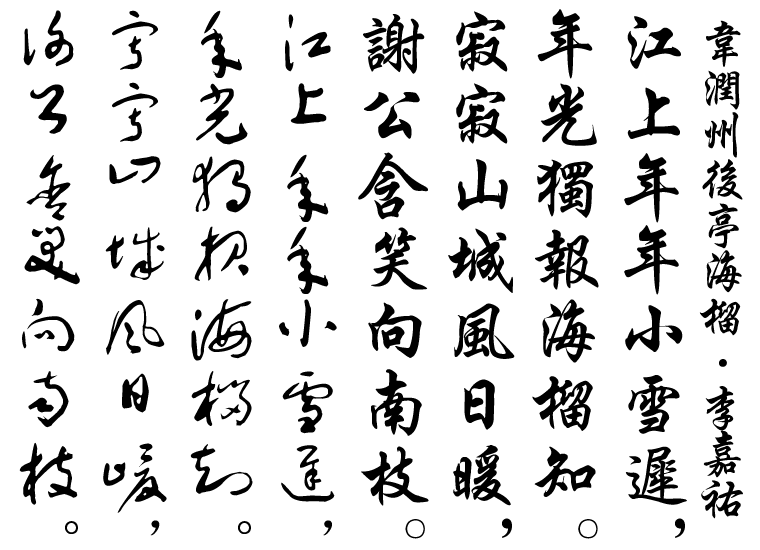 韋潤州後亭海榴·李嘉祐
江上年年小雪遲，
年光獨報海榴知。
寂寂山城風日暖，
謝公含笑向南枝。
江上年年小雪遲，
年光獨報海榴知。
寂寂山城風日暖，
謝公含笑向南枝。